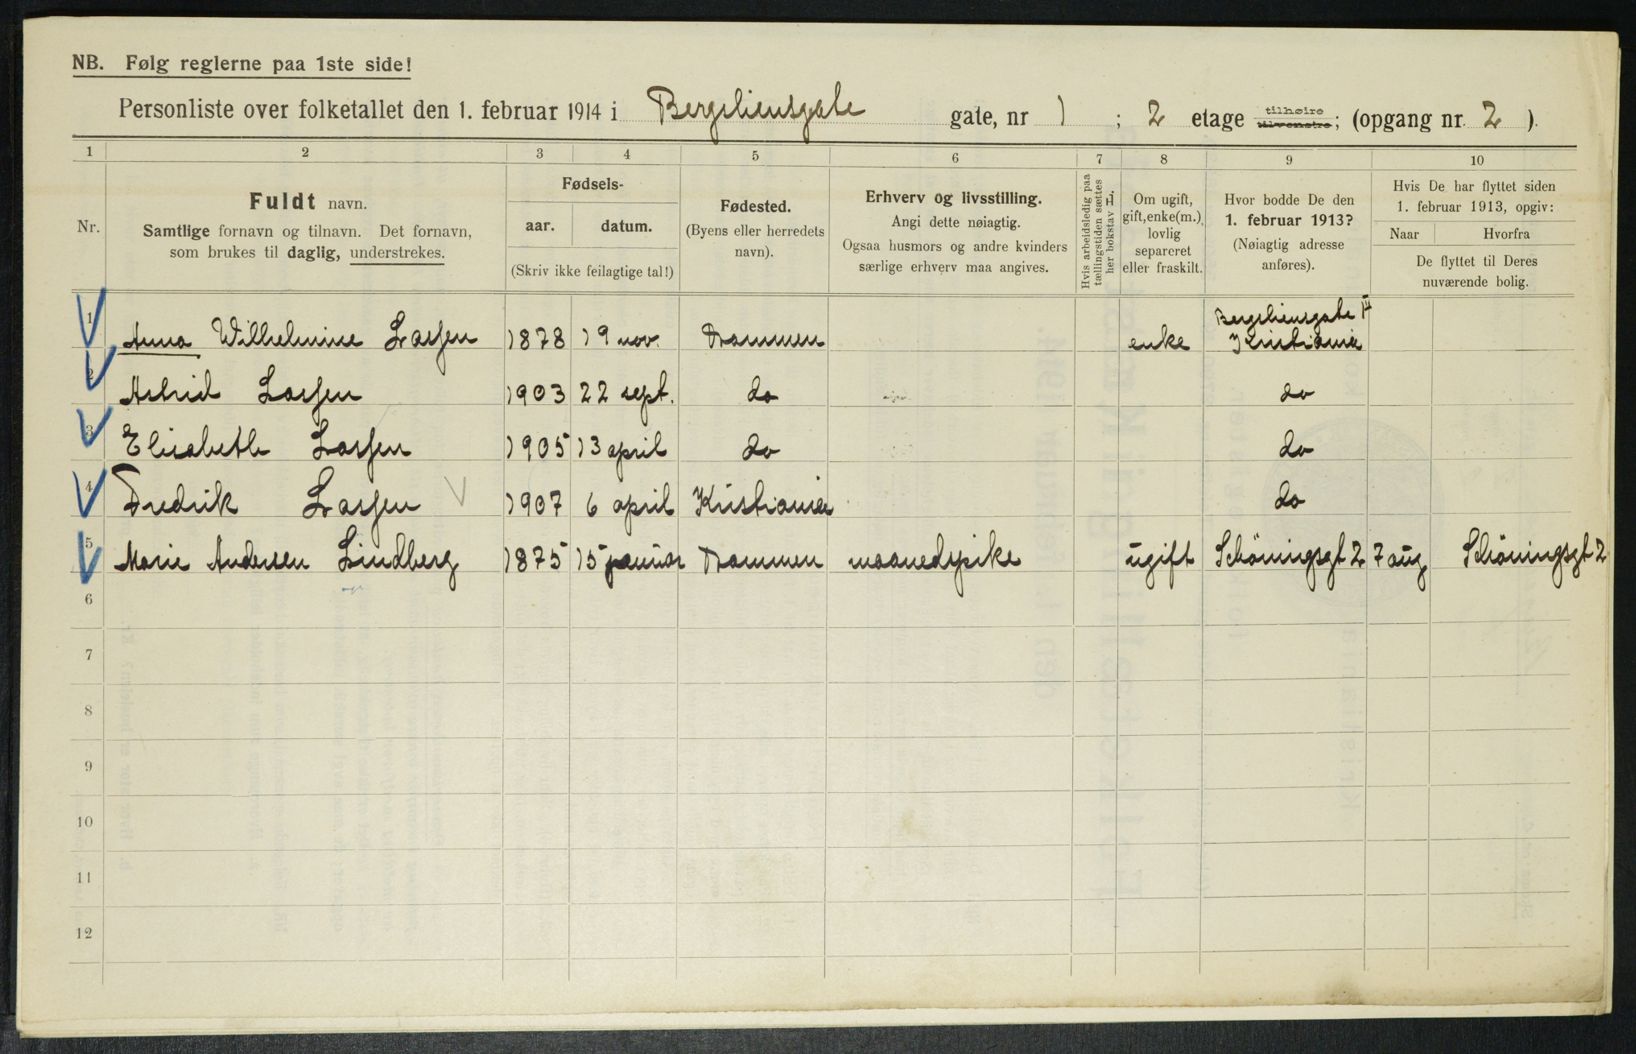 NB. Følg reglerne paa 1ste side!
Personliste over folketallet den 1. februar 1914 i Bergsliensgate gate, nr 1 ; 2 etage tilhøire tilvenstre; (opgang nr. 2 ).
1 2 3 4 5 6 7 8 9 10
Nr.
Fuldt navn.
Samtlige fornavn og tilnavn. Det fornavn,
som brukes til daglig, understrekes.
Fødsels-
aar. datum.
(Skriv ikke feilagtige tal!)
Fødested.
(Byens eller herredets
navn).
Erhverv og livsstilling.
Angi dette nøiagtig.
Ogsaa husmors og andre kvinders
særlige erhverv maa angives.
Hvis arbeidsledig paa
tællingstiden sættes
her bokstav L.
Om ugift,
gift, enke(m.),
lovlig
separeret
eller fraskilt.
Hvor bodde De den
1. februar 1913?
(Nøiagtig adresse
anføres).
Hvis De har flyttet siden
1. februar 1913, opgiv:
Naar Hvorfra
De flyttet til Deres
nuværende bolig.
1 Anna Wilhelmine Lassen 1878 19 nov. Drammen enke Bergsliensgate 1 Kristiania
2 Astrid Lassen 1903 22 sept. do do
3 Elisabeth Lassen 1905 13 april do do
4 Fredrik Lassen 1907 6 april Kristiania do
5 Marie Andersen Lindberg 1875 15 januar Drammen maanedspike ugift Schöningsgt 2 7 aug Schöningsgt 2
6
7
8
9
10
11
12